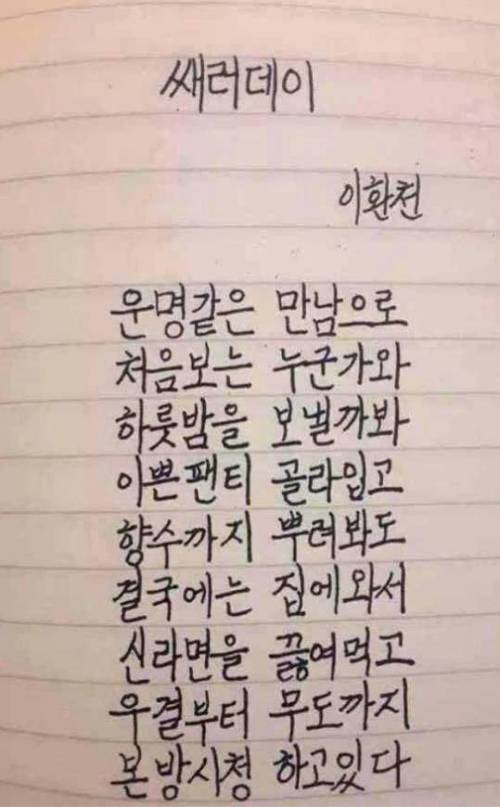 쌔러데이
이환천
운명같은 만남으로
처음보는 누군가와
하룻밤을 보낼까봐
이쁜팬티 골라입고
향수까지 뿌려봐도
결국에는 집에와서
신라면을 끓여먹고
우결부터 무도까지
본방사청 하고있다